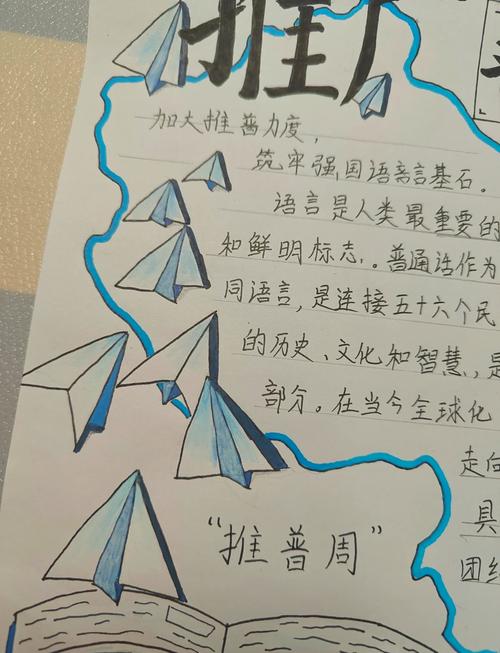 推广
加大推普力度，
筑牢强国语言基石。
语言是人类最重要的
和鲜明标志，。普通话作为
同语言，是连接五十六个民
的历史、文化和智慧，是
部分。在当今全球化
走向
具
团结
“推普周”